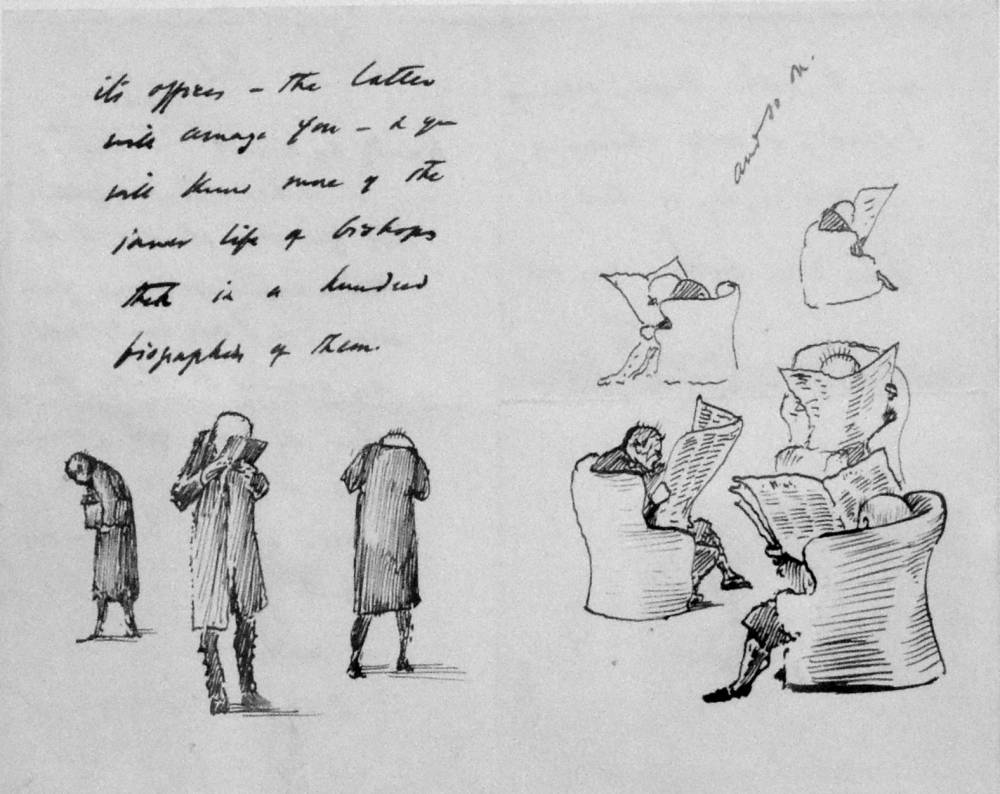 its offices – the latter
will amaze you – & you
will know more of the
inner life of bishops
than in a hundred
biographies of them.
and so on.